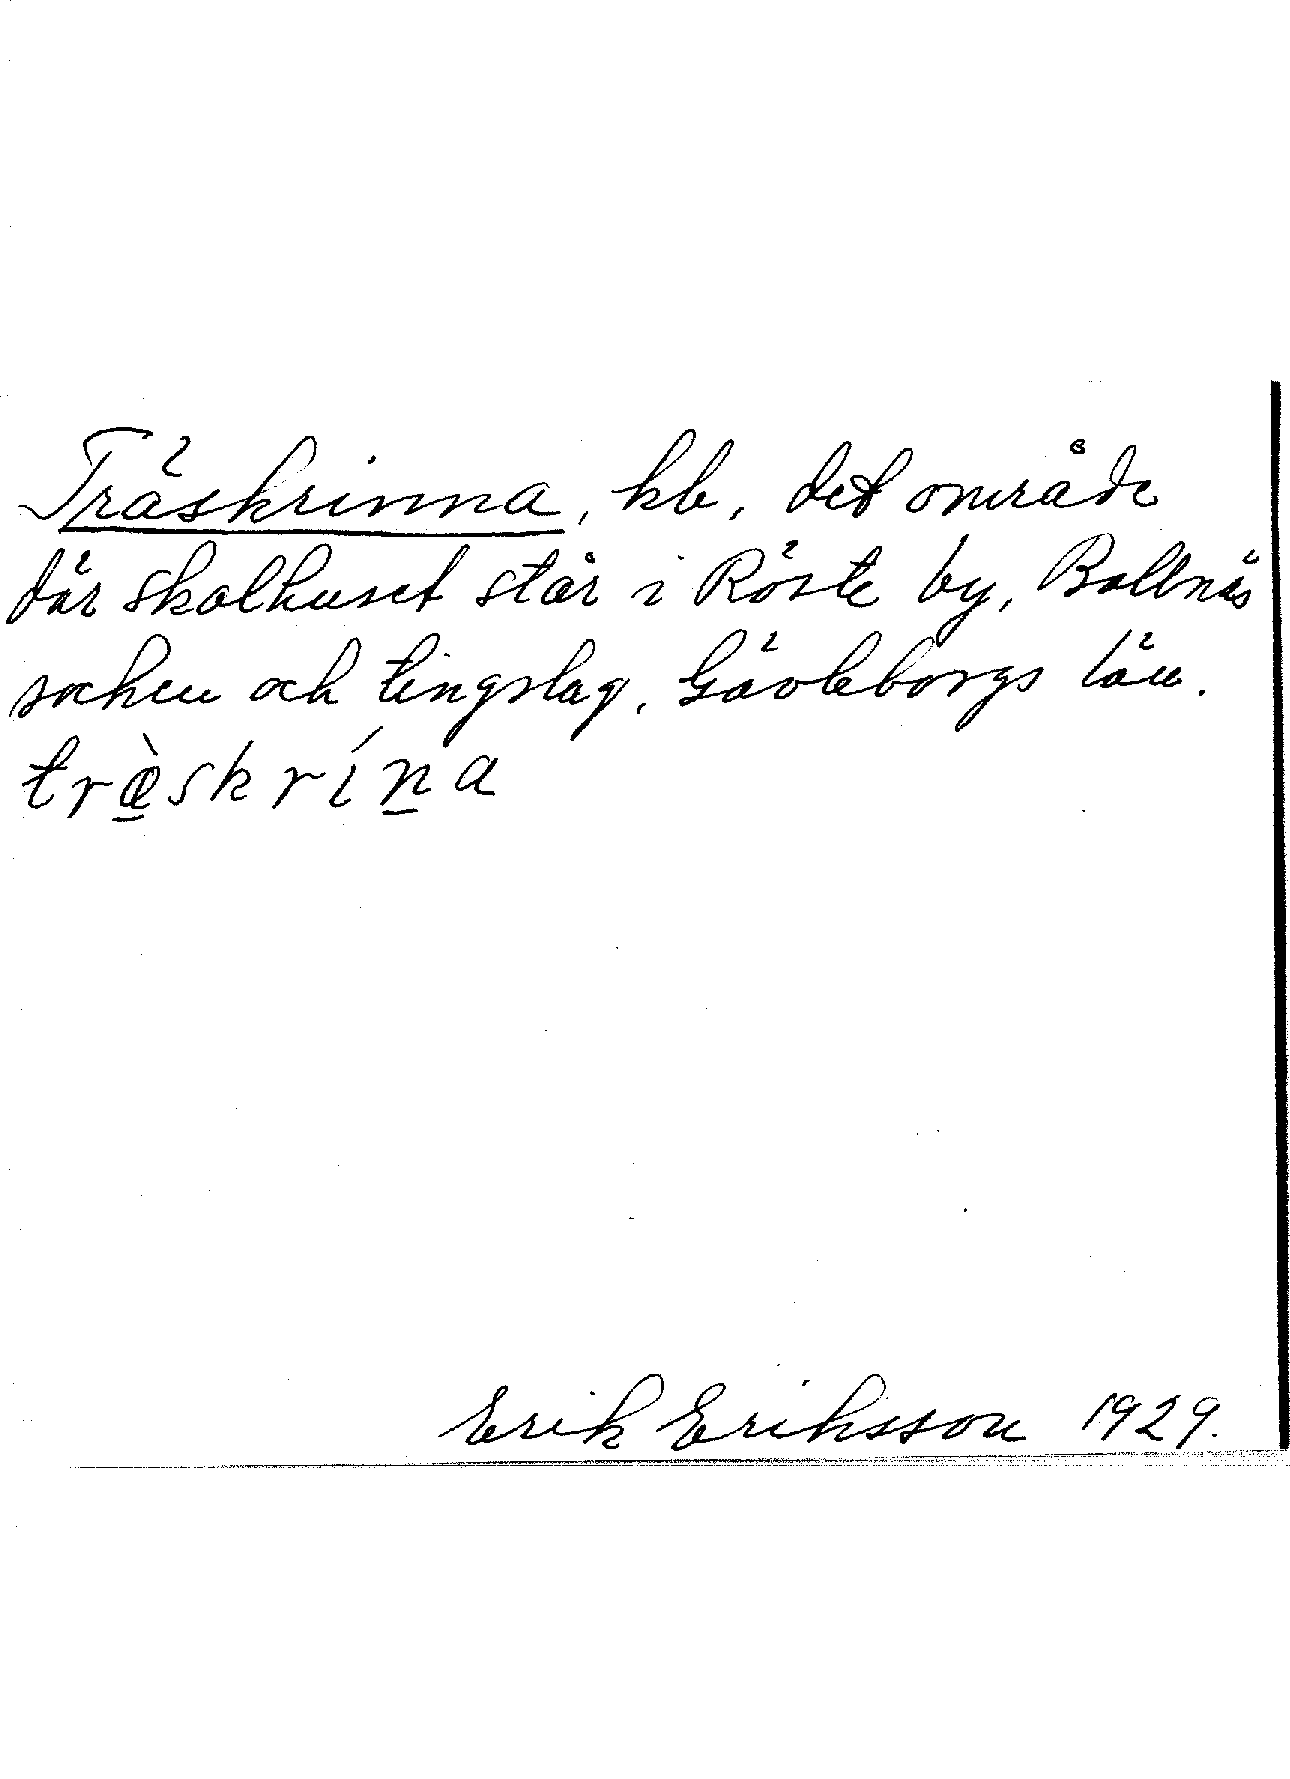 Träskrinna, kb, det område
där skolhuset står i Röste by, Bollnäs
socken och tingslag, Gävleborgs län.
træ̱̀skríṉa
Erik Eriksson 1929.